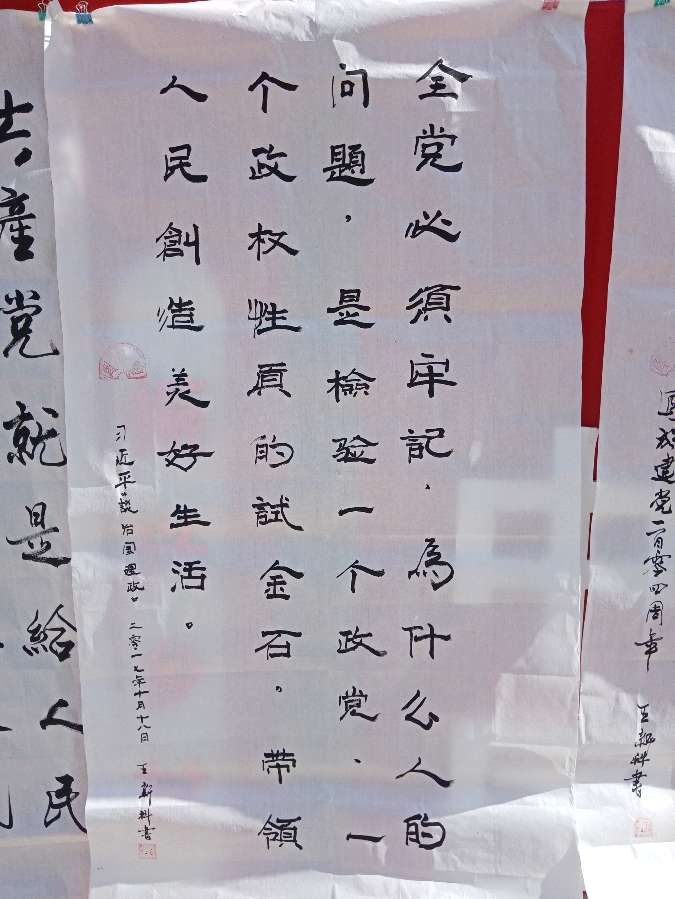 写於建党一百零四周年 王新科書
全党必須牢記、為什么人的
问題，是檢验一个政党、一
个政权性质的試金石。带領
人民創造美好生活。
习近平談治国理政。二零一七年十月十八日 王新科書
共產党就是給人民